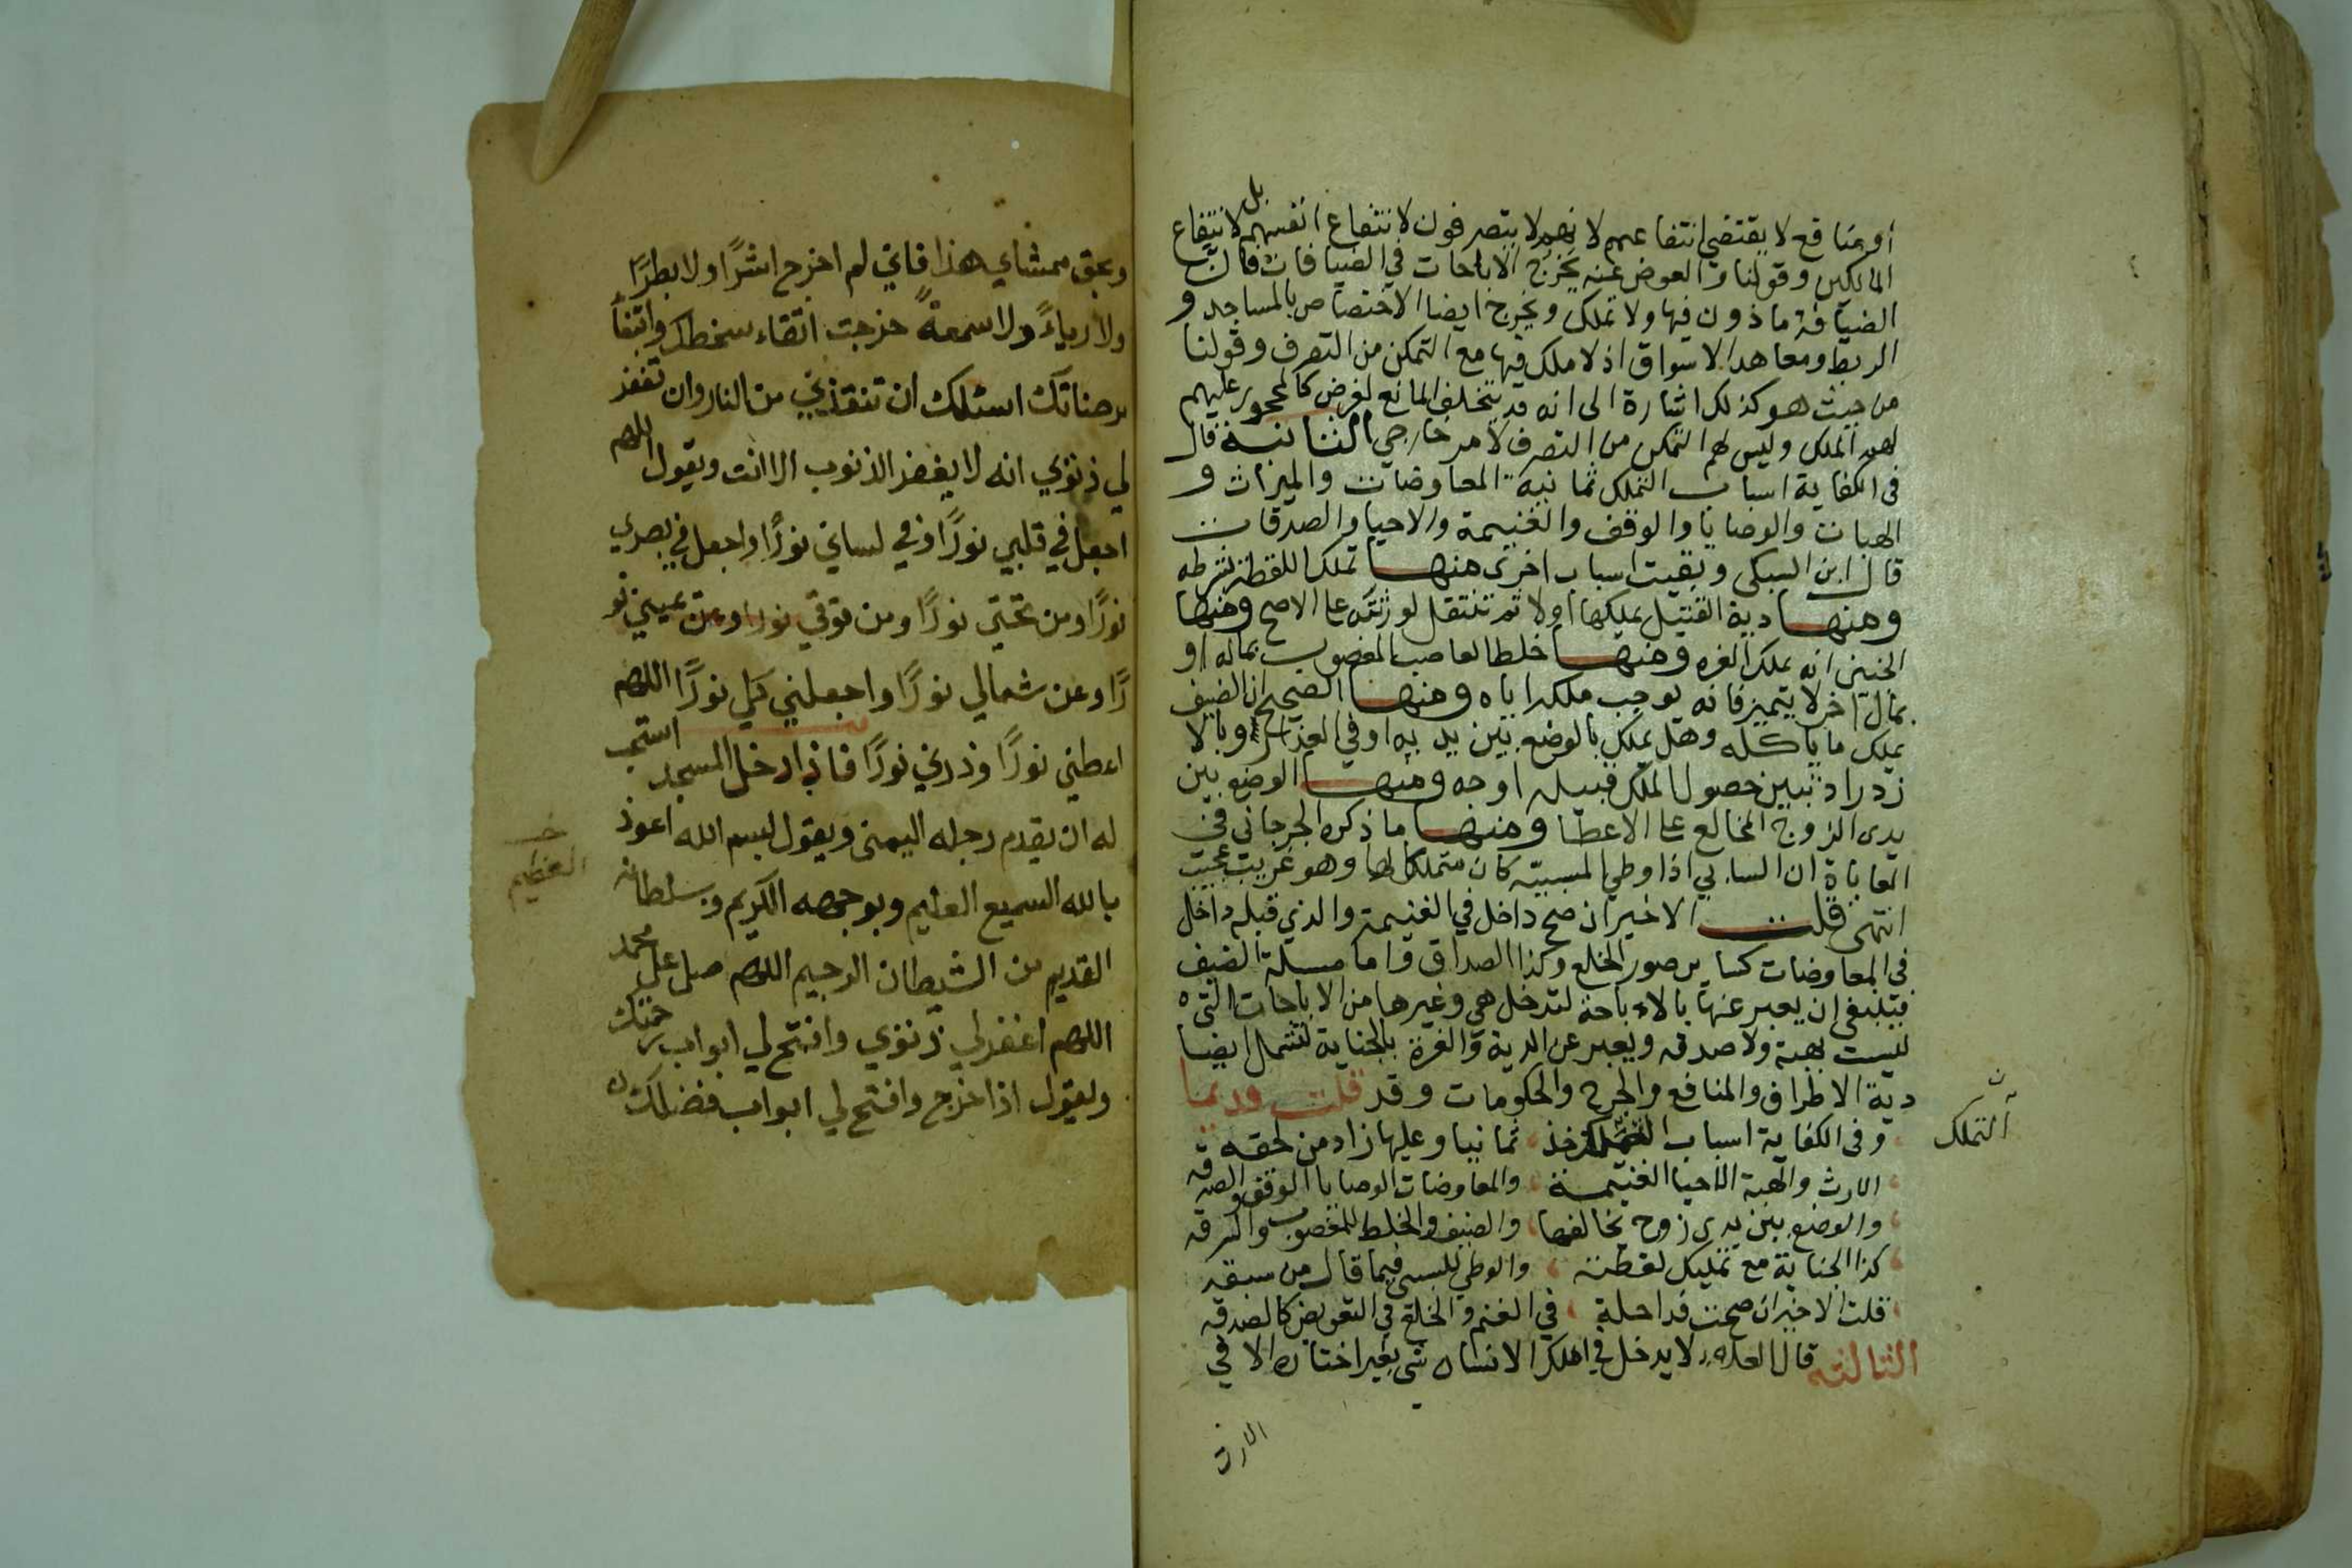 أو بمنافع لا يقتضي انتفاعهم لانهم لا يتصرفون لانتفاع انفسهم بل لانتفاع
المالكين وقولنا والعوض عنه يخرج الاباحات في الضيافات فان
الضيافة ماذون فيها ولا تملك ويخرج ايضا الاختصاص بالمساجد و
الربط ومعاهد الاسواق اذ لا ملك فيها مع التمكن من التصرف وقولنا
من حيث هو كذلك اشارة الى انه قد يتخلف المانع لغرض كالمحجور عليهم
لهم الملك وليس لهم التمكن من التصرف لامر خارجي الثانية قال
في الكفاية اسباب التملك ثمانية المعاوضات والميراث و
الهبات والوصايا والوقف والغنيمة والاحيا والصدقات
قال ابن السبكي وبقيت اسباب اخرى منها تملك اللقطة بشرطه
ومنها دية القتيل يملكها اولا ثم تنتقل لورثته على الاصح ومنها
الجنين انه يملك الغره ومنها خلط الغاصب المغصوب بماله او
بمال اخر لا يتميز فانه يوجب ملكه اياه ومنها الصحيح ان الضيف
يملك ما ياكله وهل يملك بالوضع بين يديه او في الفم او بالا
زدراد تبين حصول الملك قبيله اوجه ومنها الوضع بين
يدي الزوج المخالع على الاعطا ومنها ما ذكره الجرجاني في
المعاياة ان السابي اذا وطي المسبية كان متملكا لها وهو غريب عجيب
انتهى قلت الاخير ان صح داخل في الغنيمة والذي قبله داخل
في المعاوضات كساير صور الخلع وكذا الصداق واما مسلة الضيف
فينبغي ان يعبر عنها بالاباحة لتدخل هي وغيرها من الاباحات التي
ليست بهبة ولا صدقه ويعبر عن الدية والغرة بالجناية لتشمل ايضا
دية الاطراف والمنافع والجرح والحكومات وقد قلت قديما
وفي الكفاية اسباب التملك خذ ثمانيا وعليها زاد من لحقه
التملك
الارث والهبة الاحيا الغنيمة والمعاوضات الوصايا الوقف والصدقه
والوضع بين يدي زوج يخالعها والضيف والخلط للمغصوب والسرقه
كذا الجناية مع تمليك لقطته والوطي للسبي فيما قال من سبقه
قلت الاخير ان صحت فداخلة في الغنم والخلع في التعويض كالصدقه
الثالثه قال العلا لا يدخل في املك الانسان شي بغير اختياره الا في
الارث
وبحق ممشاي هذا فاني لم اخرج اشرًا ولا بطرًا
ولا رياءً ولا سمعةً خرجت اتقاء سخطك وابتغا
مرضاتك اسئلك ان تنقذني من النار وان تغفر
لي ذنوبي انه لا يغفر الذنوب الا انت ويقول اللهم
اجعل في قلبي نورًا وفي لساني نورًا واجعل في بصري
نورًا ومن تحتي نورًا ومن فوقي نورا وعن يميني نو
رًا وعن شمالي نورًا واجعلني كلي نورًا اللهم
اعطني نورًا وزدني نورًا فاذا دخل المسجد استحب
له ان يقدم رجله اليمنى ويقول بسم الله اعوذ
بالله السميع العليم وبوجهه الكريم وبسلطانه
العظيم
القديم من الشيطان الرجيم اللهم صل على محمد
اللهم اغفر لي ذنوبي وافتح لي ابواب رحمتك
ويقول اذا خرج وافتح لي ابواب فضلك